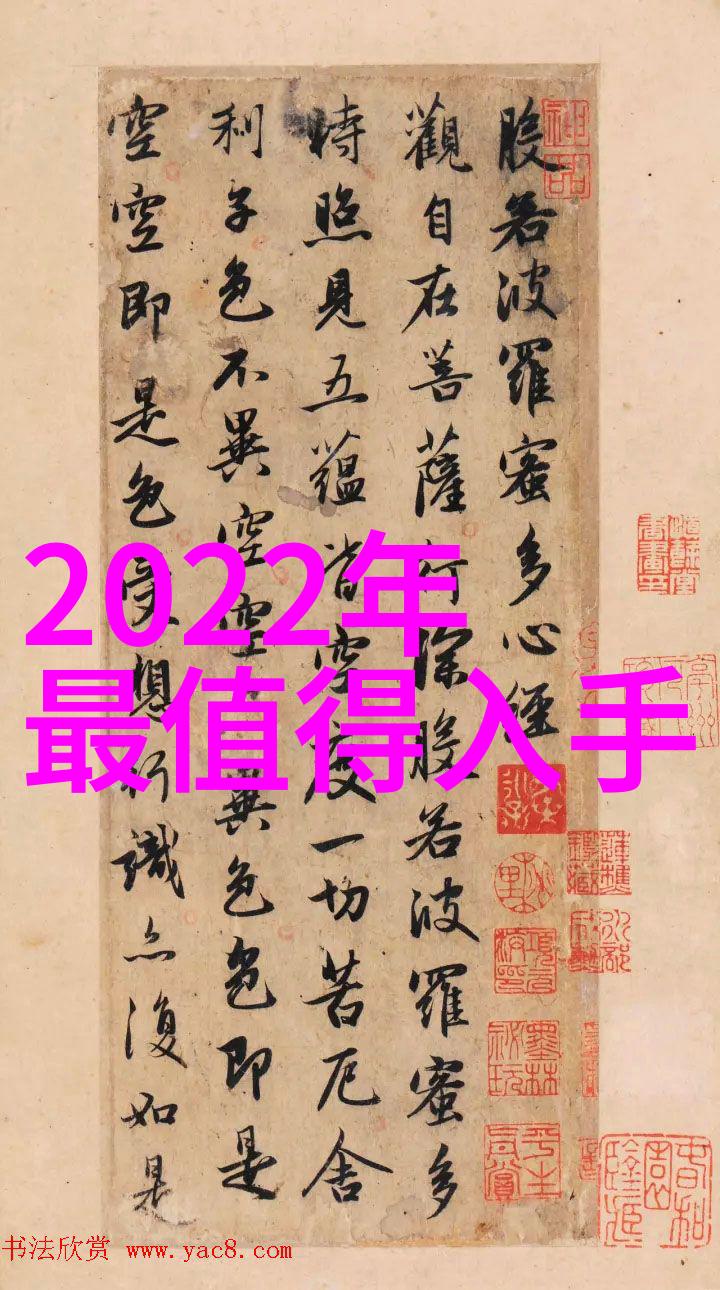 2022年
最值得入手
般若波羅蜜多心經
觀自在菩薩行深般若波羅蜜多
時照見五蘊皆空度一切苦厄舍
利子色不異空空異色色即是
空空即是色受想行識亦復如是
神品
墨林祕玩
书法欣赏 www.yac8.com